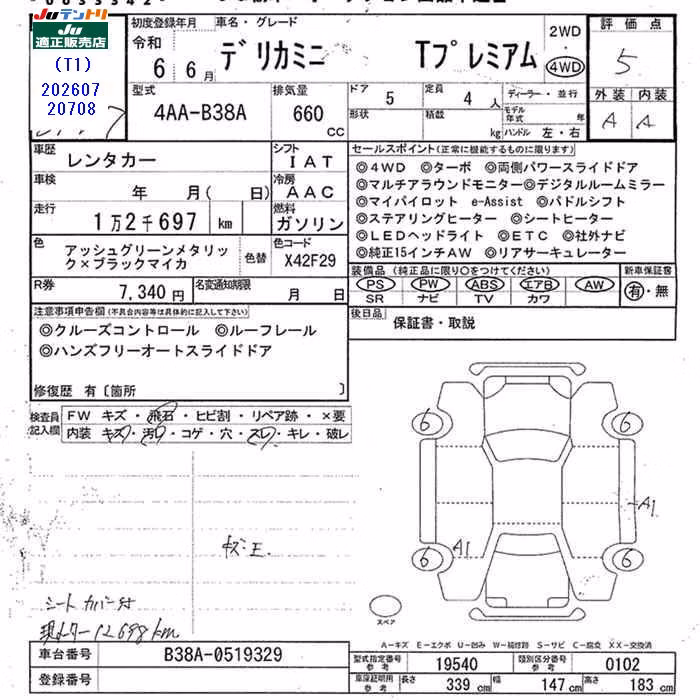 Juテントリ Ju適正販売店
(T1)
202607
20708
初度登録年月 車名・グレード
令和 6 6月 デリカミニ Tプレミアム 2WD 4WD
評価点 5
型式 4AA-B38A 排気量 660 CC
ドア 5 定員 4 人 ディーラー・並行
形状 積載 kg モデル年式 年 ハンドル 左・右
外装 内装
A A
車歴 レンタカー シフト I A T
車検 年 月( 日) 冷房 A A C
走行 1万2千697 km 燃料 ガソリン
色 アッシュグリーンメタリック×ブラックマイカ 色替 色コード X42F29
R券 7,340円 名変通知期限 月 日
セールスポイント(正常に機能するものに限ります)
◎4WD ◎ターボ ◎両側パワースライドドア
◎マルチアラウンドモニター◎デジタルルームミラー
◎マイパイロット e-Assist ◎パドルシフト
◎ステアリングヒーター ◎シートヒーター
◎LEDヘッドライト ◎ETC ◎社外ナビ
◎純正15インチAW ◎リアサーキュレーター
装備品(純正品に限り○をつけてください) 新車保証書
PS PW ABS エアB AW 有・無
SR ナビ TV カワ
後日品 保証書・取説
注意事項申告欄(不具合内容等は具体的に記入して下さい)
◎クルーズコントロール ◎ルーフレール
◎ハンズフリーオートスライドドア
修復歴 有〔箇所 〕
検査員記入欄
FW キズ・飛石・ヒビ割・リペア跡・×要
内装 キズ・汚レ・コゲ・穴・スレ・キレ・破レ
6 6
A1
6 A1 6
キズ・エ
シートカバー付
現メーター12698km
スペア
A-キズ E-エクボ U-凹み W-補修跡 S-サビ C-腐食 XX-交換済
車台番号 B38A-0519329
登録番号
型式指定番号 参考 19540 類別区分番号 参考 0102
車庫証明用 参考 長さ 339 cm 幅 147 cm 高さ 183 cm